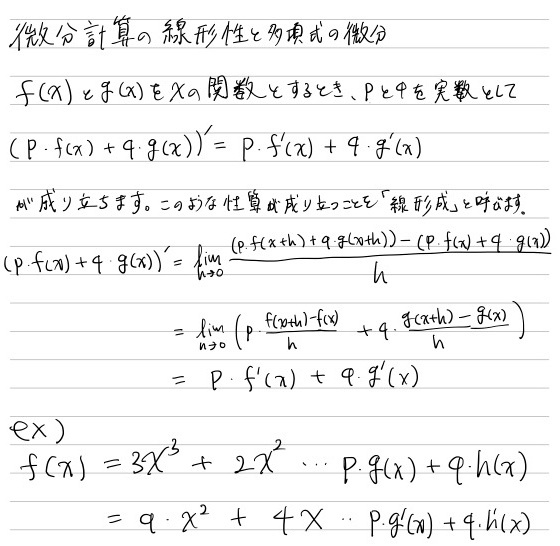 微分計算の線形性と多項式の微分
f(x)とg(x)をxの関数とするとき、pとqを実数として
(p・f(x) + q・g(x))' = p・f'(x) + q・g'(x)
が成り立ちます。このような性算が成り立つことを「線形成」と呼びます。
(p・f(x) + q・g(x))' = lim_{h→0} ((p・f(x+h) + q・g(x+h)) - (p・f(x) + q・g(x))) / h
= lim_{h→0} (p・(f(x+h)-f(x))/h + q・(g(x+h)-g(x))/h)
= p・f'(x) + q・g'(x)
ex)
f(x) = 3x³ + 2x² … p・g(x) + q・h(x)
= 9・x² + 4x ‥ p・g'(x) + q・h'(x)